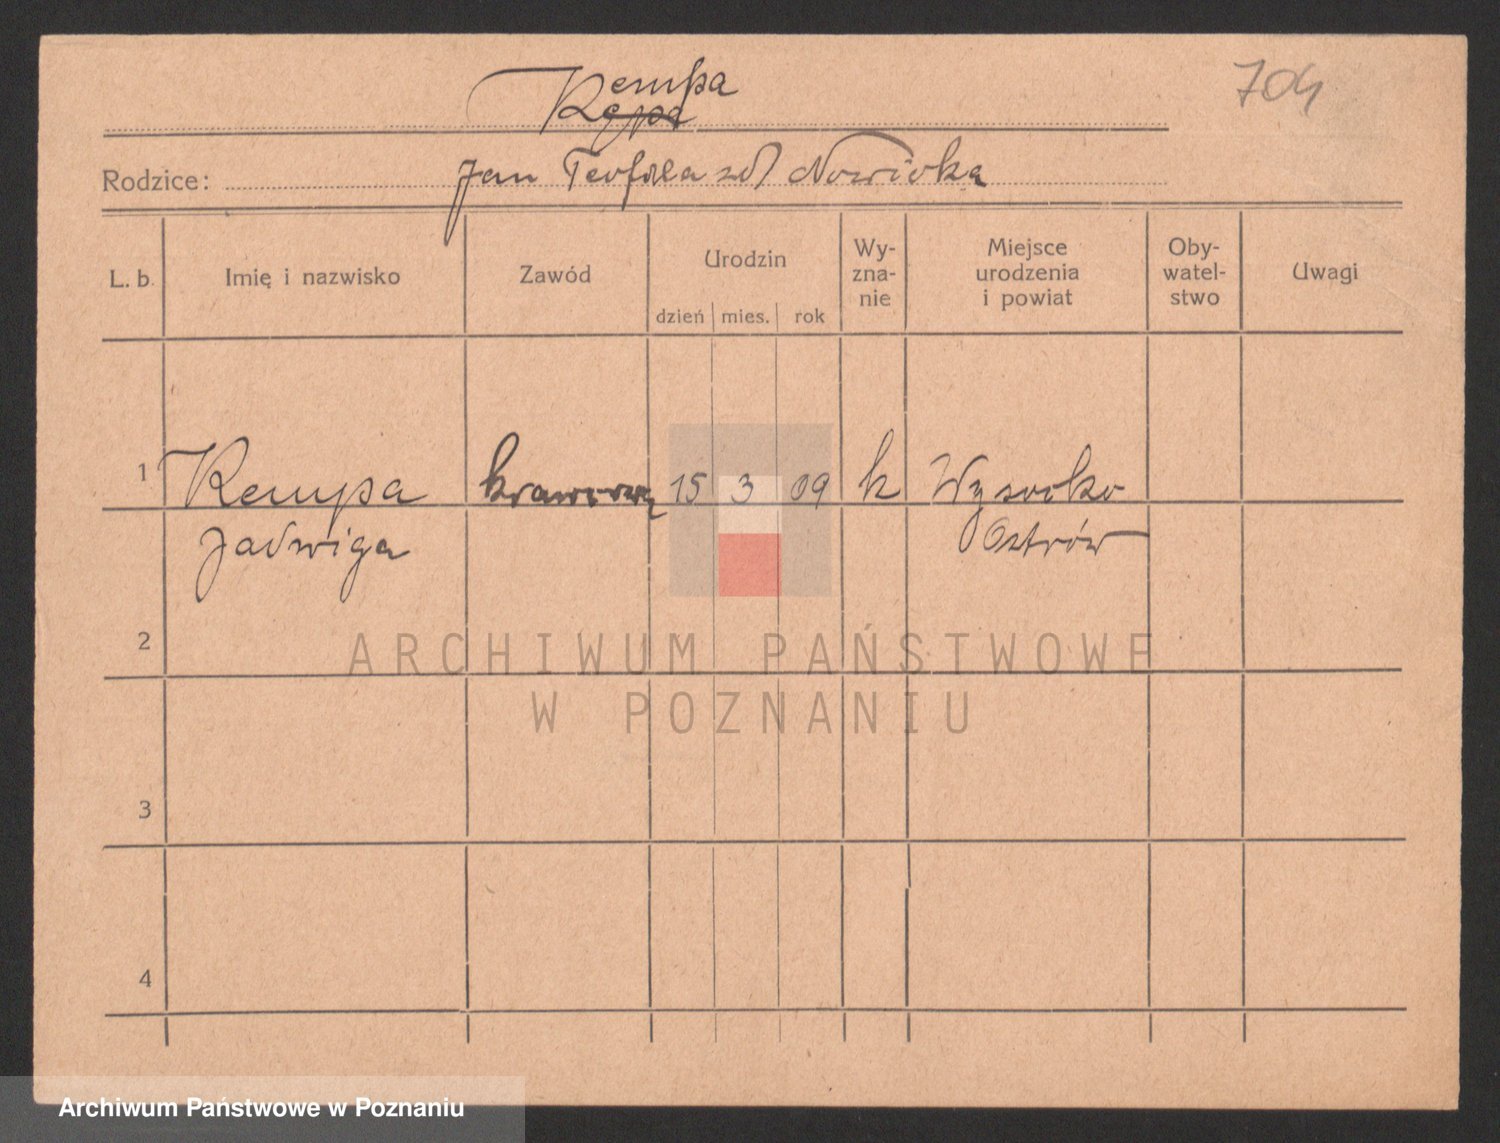 Kempa
704
Rodzice: Jan Teofila zd Nowicka
L. b. Imię i nazwisko Zawód Urodzin Wy-zna-nie Miejsce urodzenia i powiat Oby-watel-stwo Uwagi
dzień mies. rok
1 Kempa krawcowa 15 3 09 k Wysocko
Jadwiga Ostrów
2
ARCHIWUM PAŃSTWOWE
W POZNANIU
3
4
Archiwum Państwowe w Poznaniu